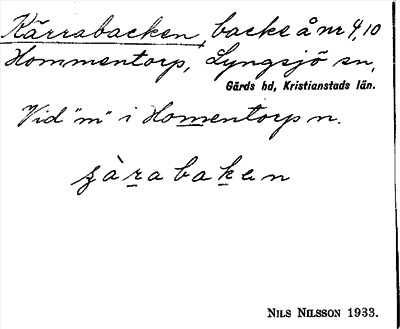 Kärrabacken, backe å nr 4,10
Hommentorp, Lyngsjö sn,
Gärds hd, Kristianstads län.
Vid "m" i Homentorp n.
ʂàrabakan
NILS NILSSON 1933.